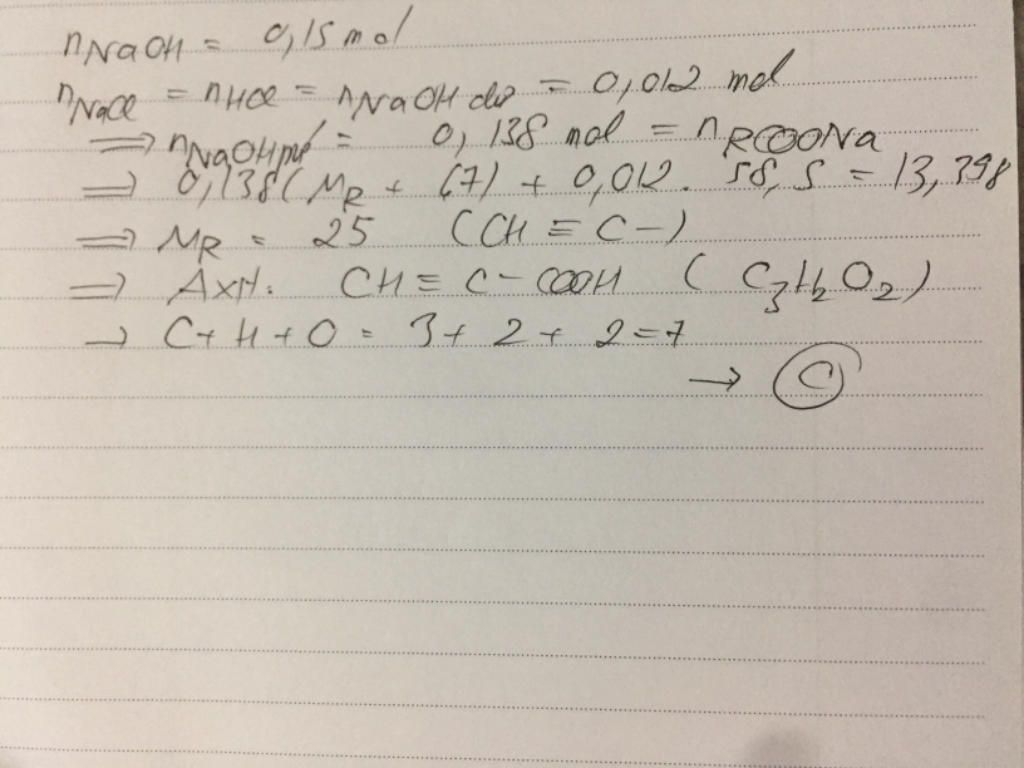 nNaOH = 0,15 mol
nNaCl = nHCl = nNaOH dư = 0,012 mol
=> nNaOH pư = 0,138 mol = nRCOONa
=> 0,138(MR + 67) + 0,012. 58,5 = 13,398
=> MR = 25 (CH ≡ C -)
=> AxH: CH ≡ C - COOH (C3H2O2)
→ C + H + O = 3 + 2 + 2 = 7
→ C